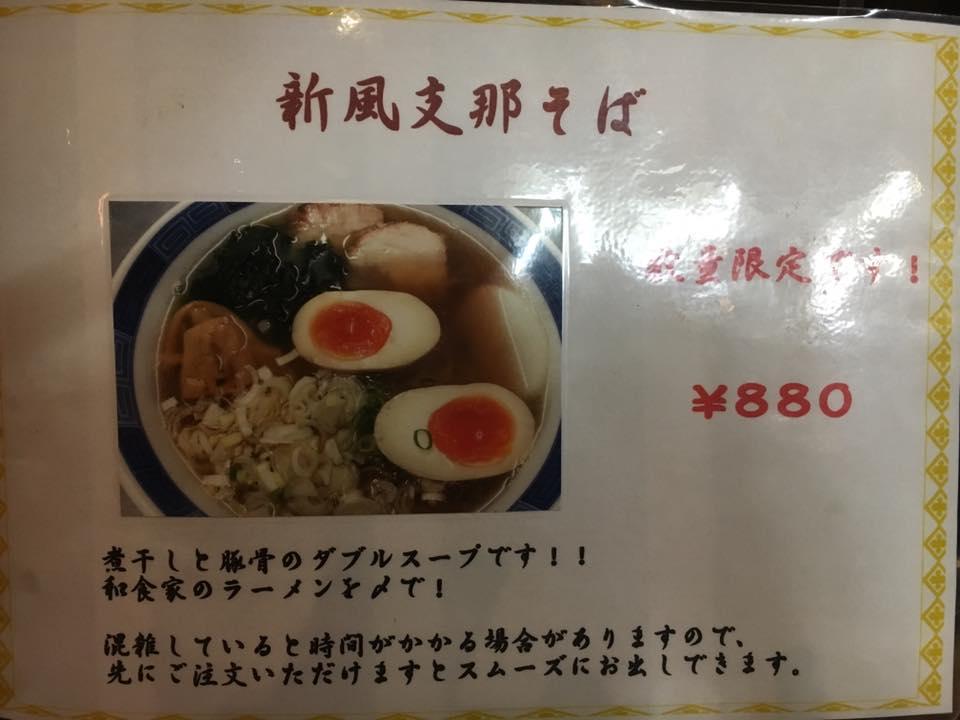 新風支那そば
数量限定です!
¥880
煮干しと豚骨のダブルスープです!!
和食家のラーメンを〆で!
混雑していると時間がかかる場合がありますので、
先にご注文いただけますとスムーズにお出しできます。